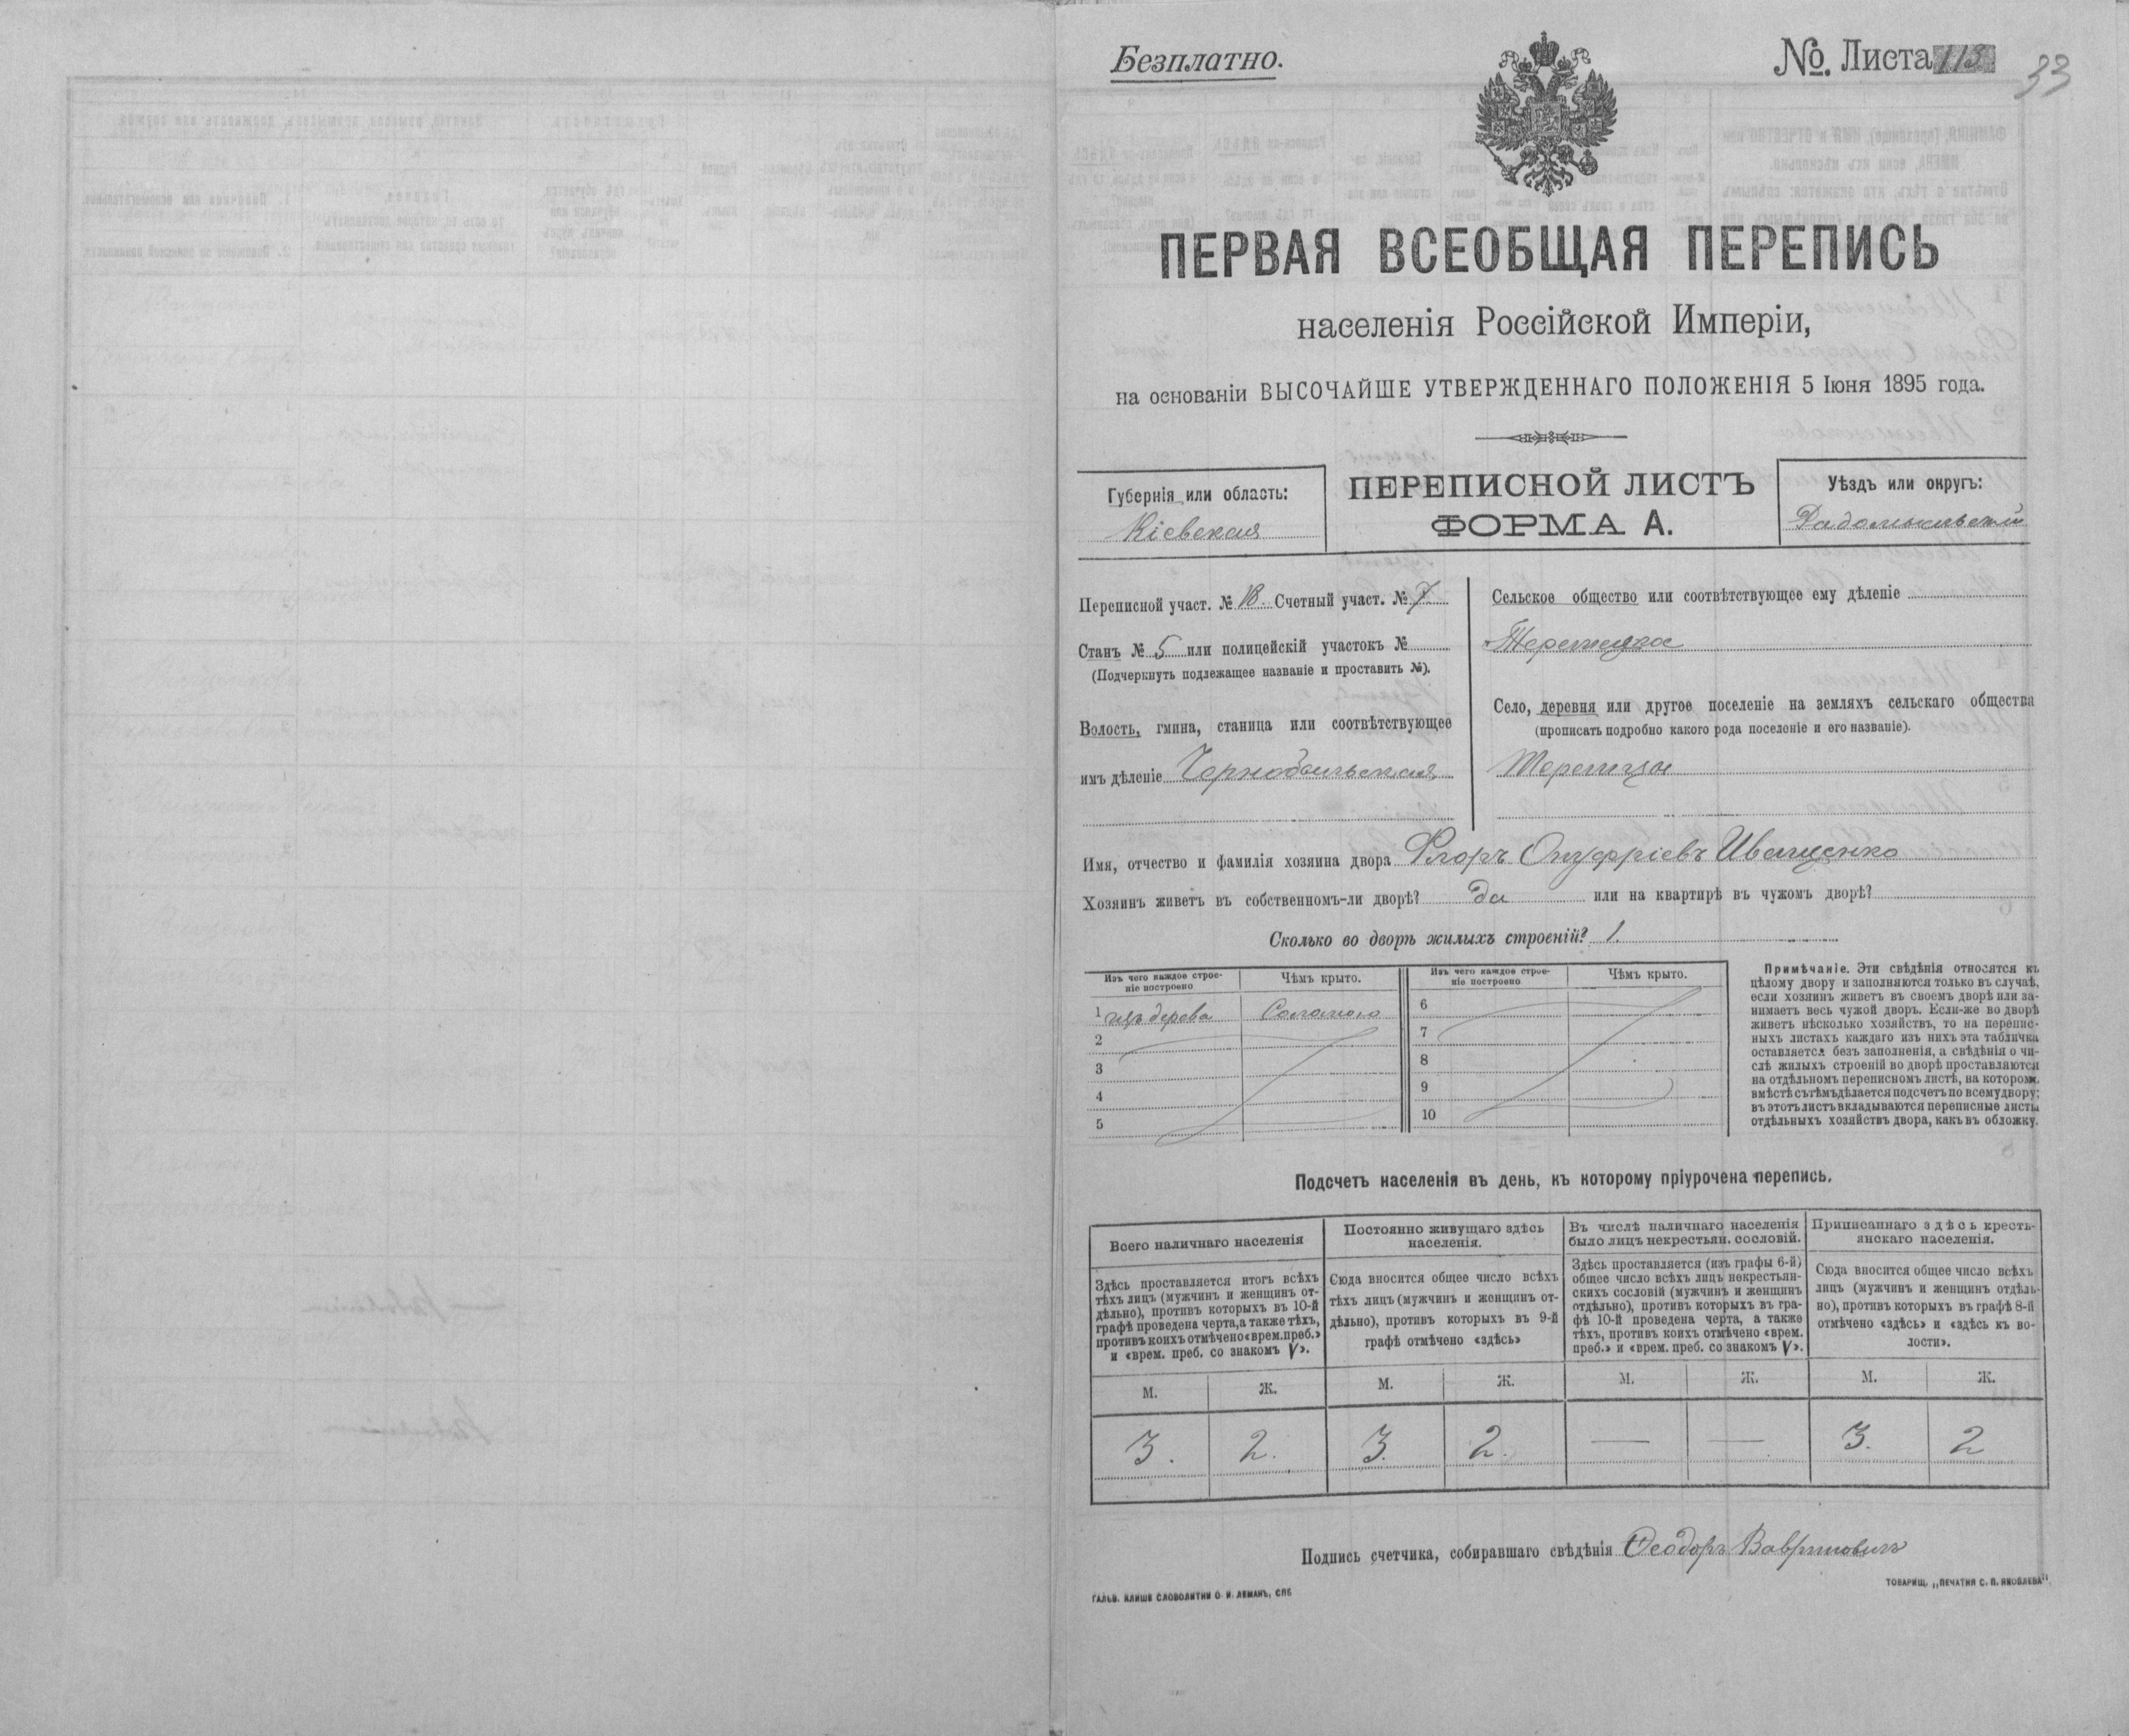 Безплатно.
№. Листа 113
33
ПЕРВАЯ ВСЕОБЩАЯ ПЕРЕПИСЬ
населенія Россійской Имперіи,
на основаніи ВЫСОЧАЙШЕ УТВЕРЖДЕННАГО ПОЛОЖЕНІЯ 5 Іюня 1895 года.
Губернія или область:
Кіевская
ПЕРЕПИСНОЙ ЛИСТЪ
ФОРМА А.
Уѣздъ или округъ:
Радомысльскій
Переписной участ. № 18. Счетный участ. № 7
Станъ № 5 или полицейскій участокъ №
(Подчеркнуть подлежащее названіе и проставить №).
Волость, гмина, станица или соотвѣтствующее
имъ дѣленіе Чернобыльская
Сельское общество или соотвѣтствующее ему дѣленіе
Село, деревня или другое поселеніе на земляхъ сельскаго общества
(прописать подробно какого рода поселеніе и его названіе).
Теремцы
Имя, отчество и фамилія хозяина двора Флоръ Онуфріевъ Иващенко
Хозяинъ живетъ въ собственномъ-ли дворѣ? да или на квартирѣ въ чужомъ дворѣ?
Сколько во дворѣ жилыхъ строеній? 1.
Изъ чего каждое строе-
ніе построено
Чѣмъ крыто.
Изъ чего каждое строе-
ніе построено
Чѣмъ крыто.
1 изъ дерева Соломою
2
3
4
5
6
7
8
9
10
Примѣчаніе. Эти свѣдѣнія относятся къ
цѣлому двору и заполняются только въ случаѣ,
если хозяинъ живетъ въ своемъ дворѣ или за-
нимаетъ весь чужой дворъ. Если-же во дворѣ
живетъ нѣсколько хозяйствъ, то на перепис-
ныхъ листахъ каждаго изъ нихъ эта табличка
оставляется безъ заполненія, а свѣдѣнія о чи-
слѣ жилыхъ строеній во дворѣ проставляются
на отдѣльномъ переписномъ листѣ, на которомъ
вмѣстѣ съ тѣмъ дѣлается подсчетъ по всему двору;
въ этотъ листъ вкладываются переписные листы
отдѣльныхъ хозяйствъ двора, какъ въ обложку.
Подсчетъ населенія въ день, къ которому пріурочена перепись.
Всего наличнаго населенія
Здѣсь проставляется итогъ всѣхъ
тѣхъ лицъ (мужчинъ и женщинъ от-
дѣльно), противъ которыхъ въ 10-й
графѣ проведена черта, а также тѣхъ,
противъ коихъ отмѣчено «врем. преб.»
и «врем. преб. со знакомъ V».
Постоянно живущаго здѣсь
населенія.
Сюда вносится общее число всѣхъ
тѣхъ лицъ (мужчинъ и женщинъ от-
дѣльно), противъ которыхъ въ 9-й
графѣ отмѣчено «здѣсь»
Въ числѣ наличнаго населенія
было лицъ некрестьян. сословій.
Здѣсь проставляется (изъ графы 6-й)
общее число всѣхъ лицъ некрестьян-
скихъ сословій (мужчинъ и женщинъ
отдѣльно), противъ которыхъ въ гра-
фѣ 10-й проведена черта, а также
тѣхъ, противъ коихъ отмѣчено «врем.
преб.» и «врем. преб. со знакомъ V».
Приписаннаго здѣсь кресть-
янскаго населенія.
Сюда вносится общее число всѣхъ
лицъ (мужчинъ и женщинъ отдѣль-
но), противъ которыхъ въ графѣ 8-й
отмѣчено «здѣсь» и «здѣсь къ во-
лости».
М. Ж. М. Ж. М. Ж. М. Ж.
3. 2. 3. 2. — — 3. 2
Подпись счетчика, собиравшаго свѣдѣнія Ѳеодоръ
ГАЛЬВ. КЛИШЕ СЛОВОЛИТНИ О. И. ЛЕМАНЪ, СПБ
ТОВАРИЩ. „ПЕЧАТНЯ С. П. ЯКОВЛЕВА"